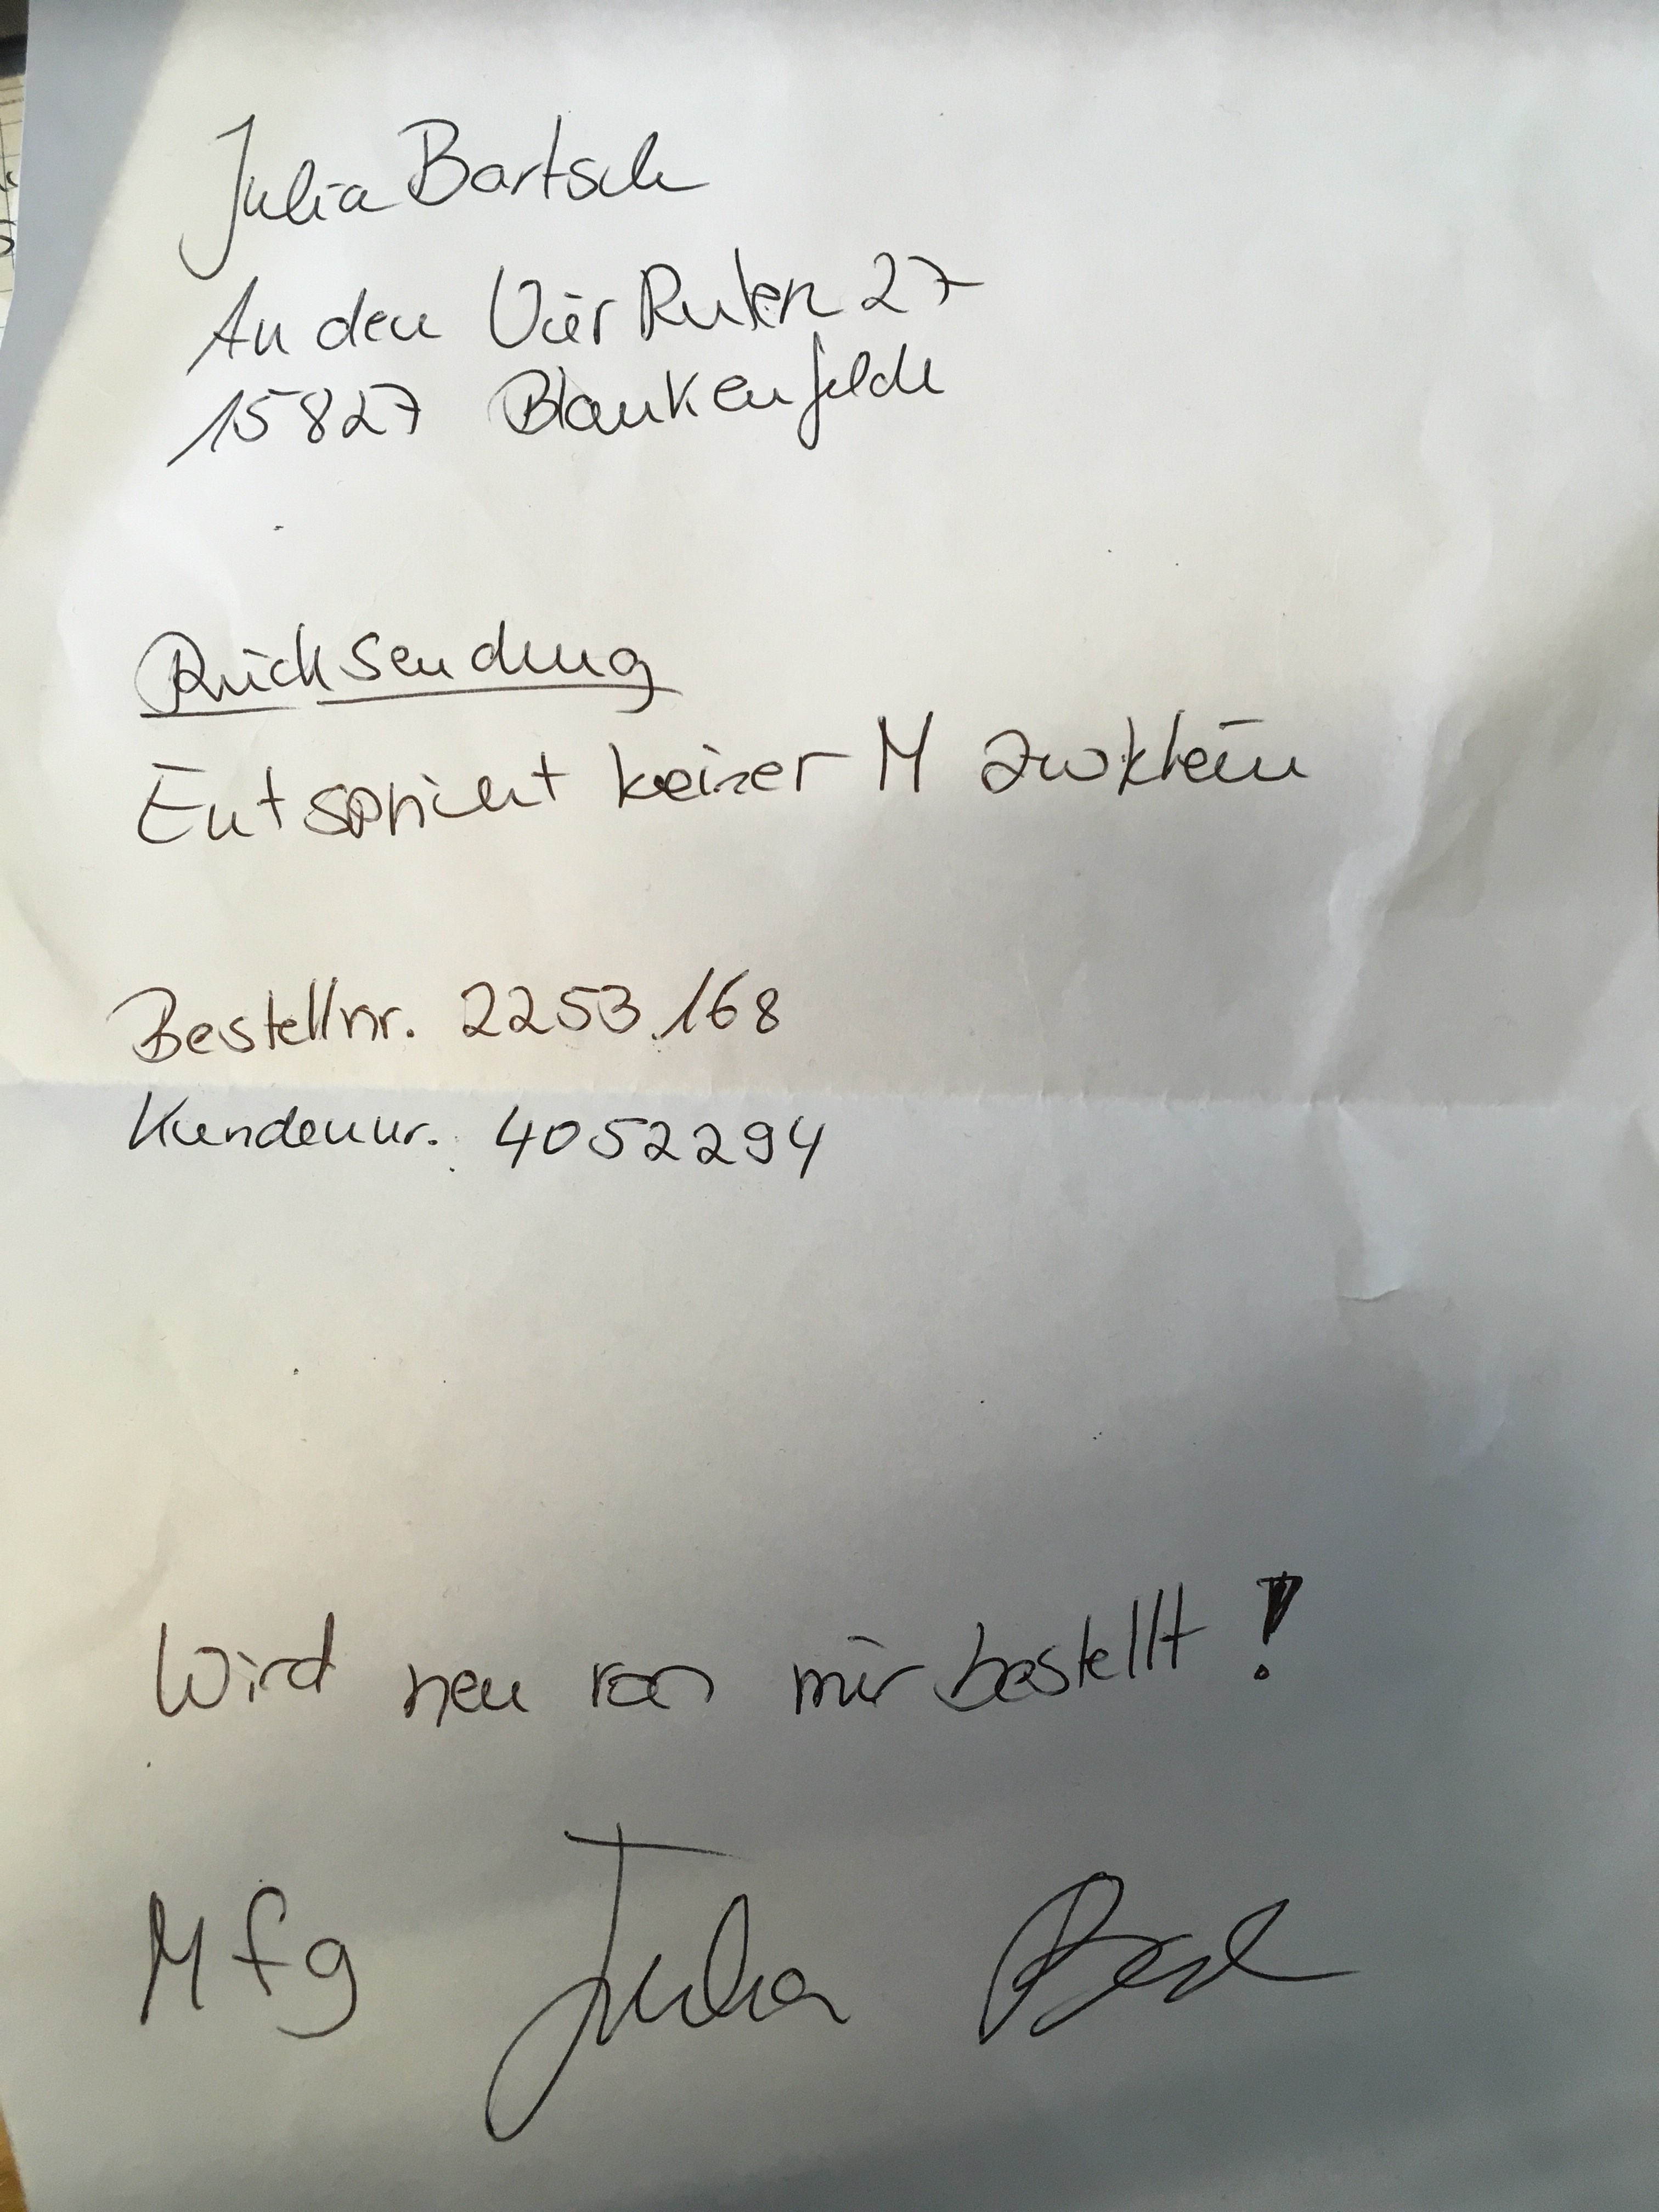 Julia Bartsch
An den Vier Ruten 27
15827 Blankenfelde
Rücksendung
Entspricht keiner M zu klein
Bestellnr. 2253168
Kundennr. 4052294
Wird neu von mir bestellt!
Mfg Julia